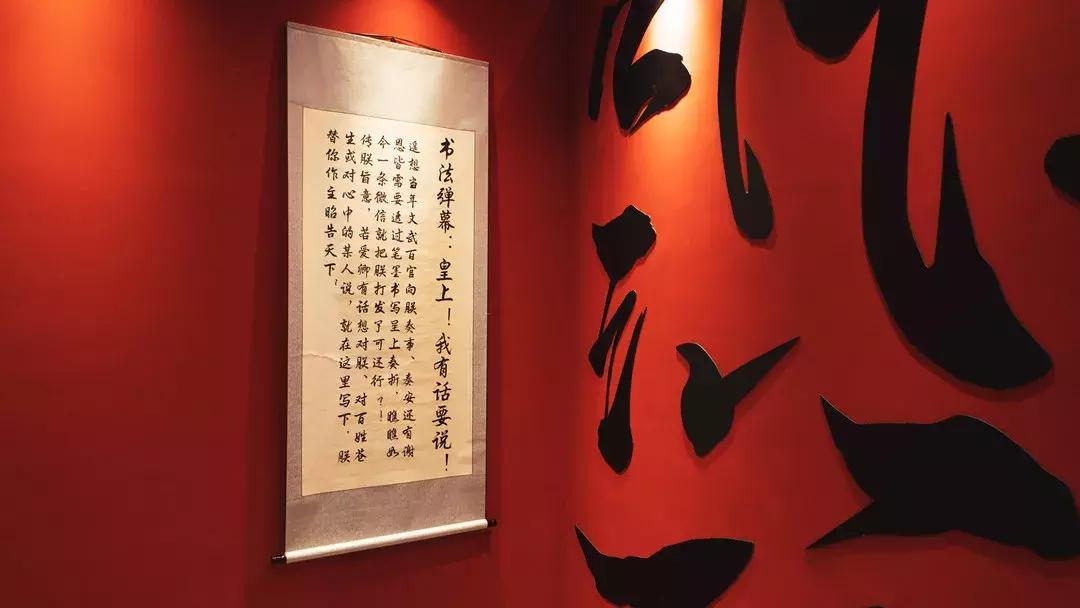 书法弹幕：皇上！我有话要说！
遥想当年文武百官向朕奏事、奏安还有谢
恩皆需要透过笔墨书写呈上奏折，瞧瞧如
今一条微信就把朕打发了可还行？！
传朕旨意，若爱卿有话想对朕、对百姓苍
生或对心中的某人说，就在这里写下，朕
替你作主昭告天下！